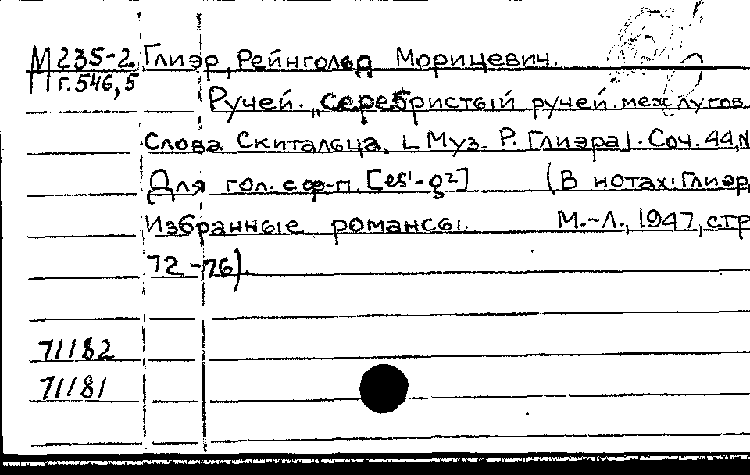 М 235-2 Глиэр, Рейнгольд Морицевич.
Г. 546,5
Ручей. „Серебристый ручей меж лугов.
Слова Скитальца. [Муз. Р. Глиэра]. Соч. 44, N
Для гол. с ф-п. [es¹-g²] (В нотах: Глиэр,
Избранные романсы. М.-Л., 1947, стр
72-76).
71182
71181